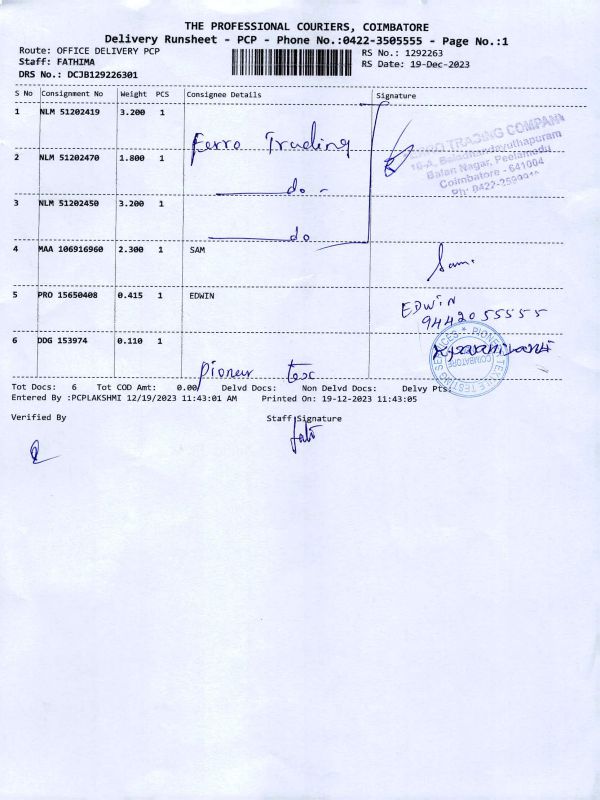 THE PROFESSIONAL COURIERS, COIMBATORE
Delivery Runsheet - PCP - Phone No.:0422-3505555 - Page No.:1
Route: OFFICE DELIVERY PCP
RS No.: 1292263
Staff: FATHIMA
RS Date: 19-Dec-2023
DRS No.: DCJB129226301
S No Consignment No Weight PCS Consignee Details Signature
1 NLM 51202419 3.200 1
Ferro Trading
FERRO TRADING COMPANY
Balan Nagar, Peelamedu
Coimbatore - 641004
2 NLM 51202470 1.800 1
do -
3 NLM 51202450 3.200 1
do
4 MAA 106916960 2.300 1 SAM
Sam.
5 PRO 15650408 0.415 1 EDWIN
EDWIN
9442055555
6 DDG 153974 0.110 1
Pioneer tex
COIMBATORE
Tot Docs: 6 Tot COD Amt: 0.00 Delvd Docs: Non Delvd Docs: Delvy Pts:
Entered By :PCPLAKSHMI 12/19/2023 11:43:01 AM Printed On: 19-12-2023 11:43:05
Verified By Staff Signature